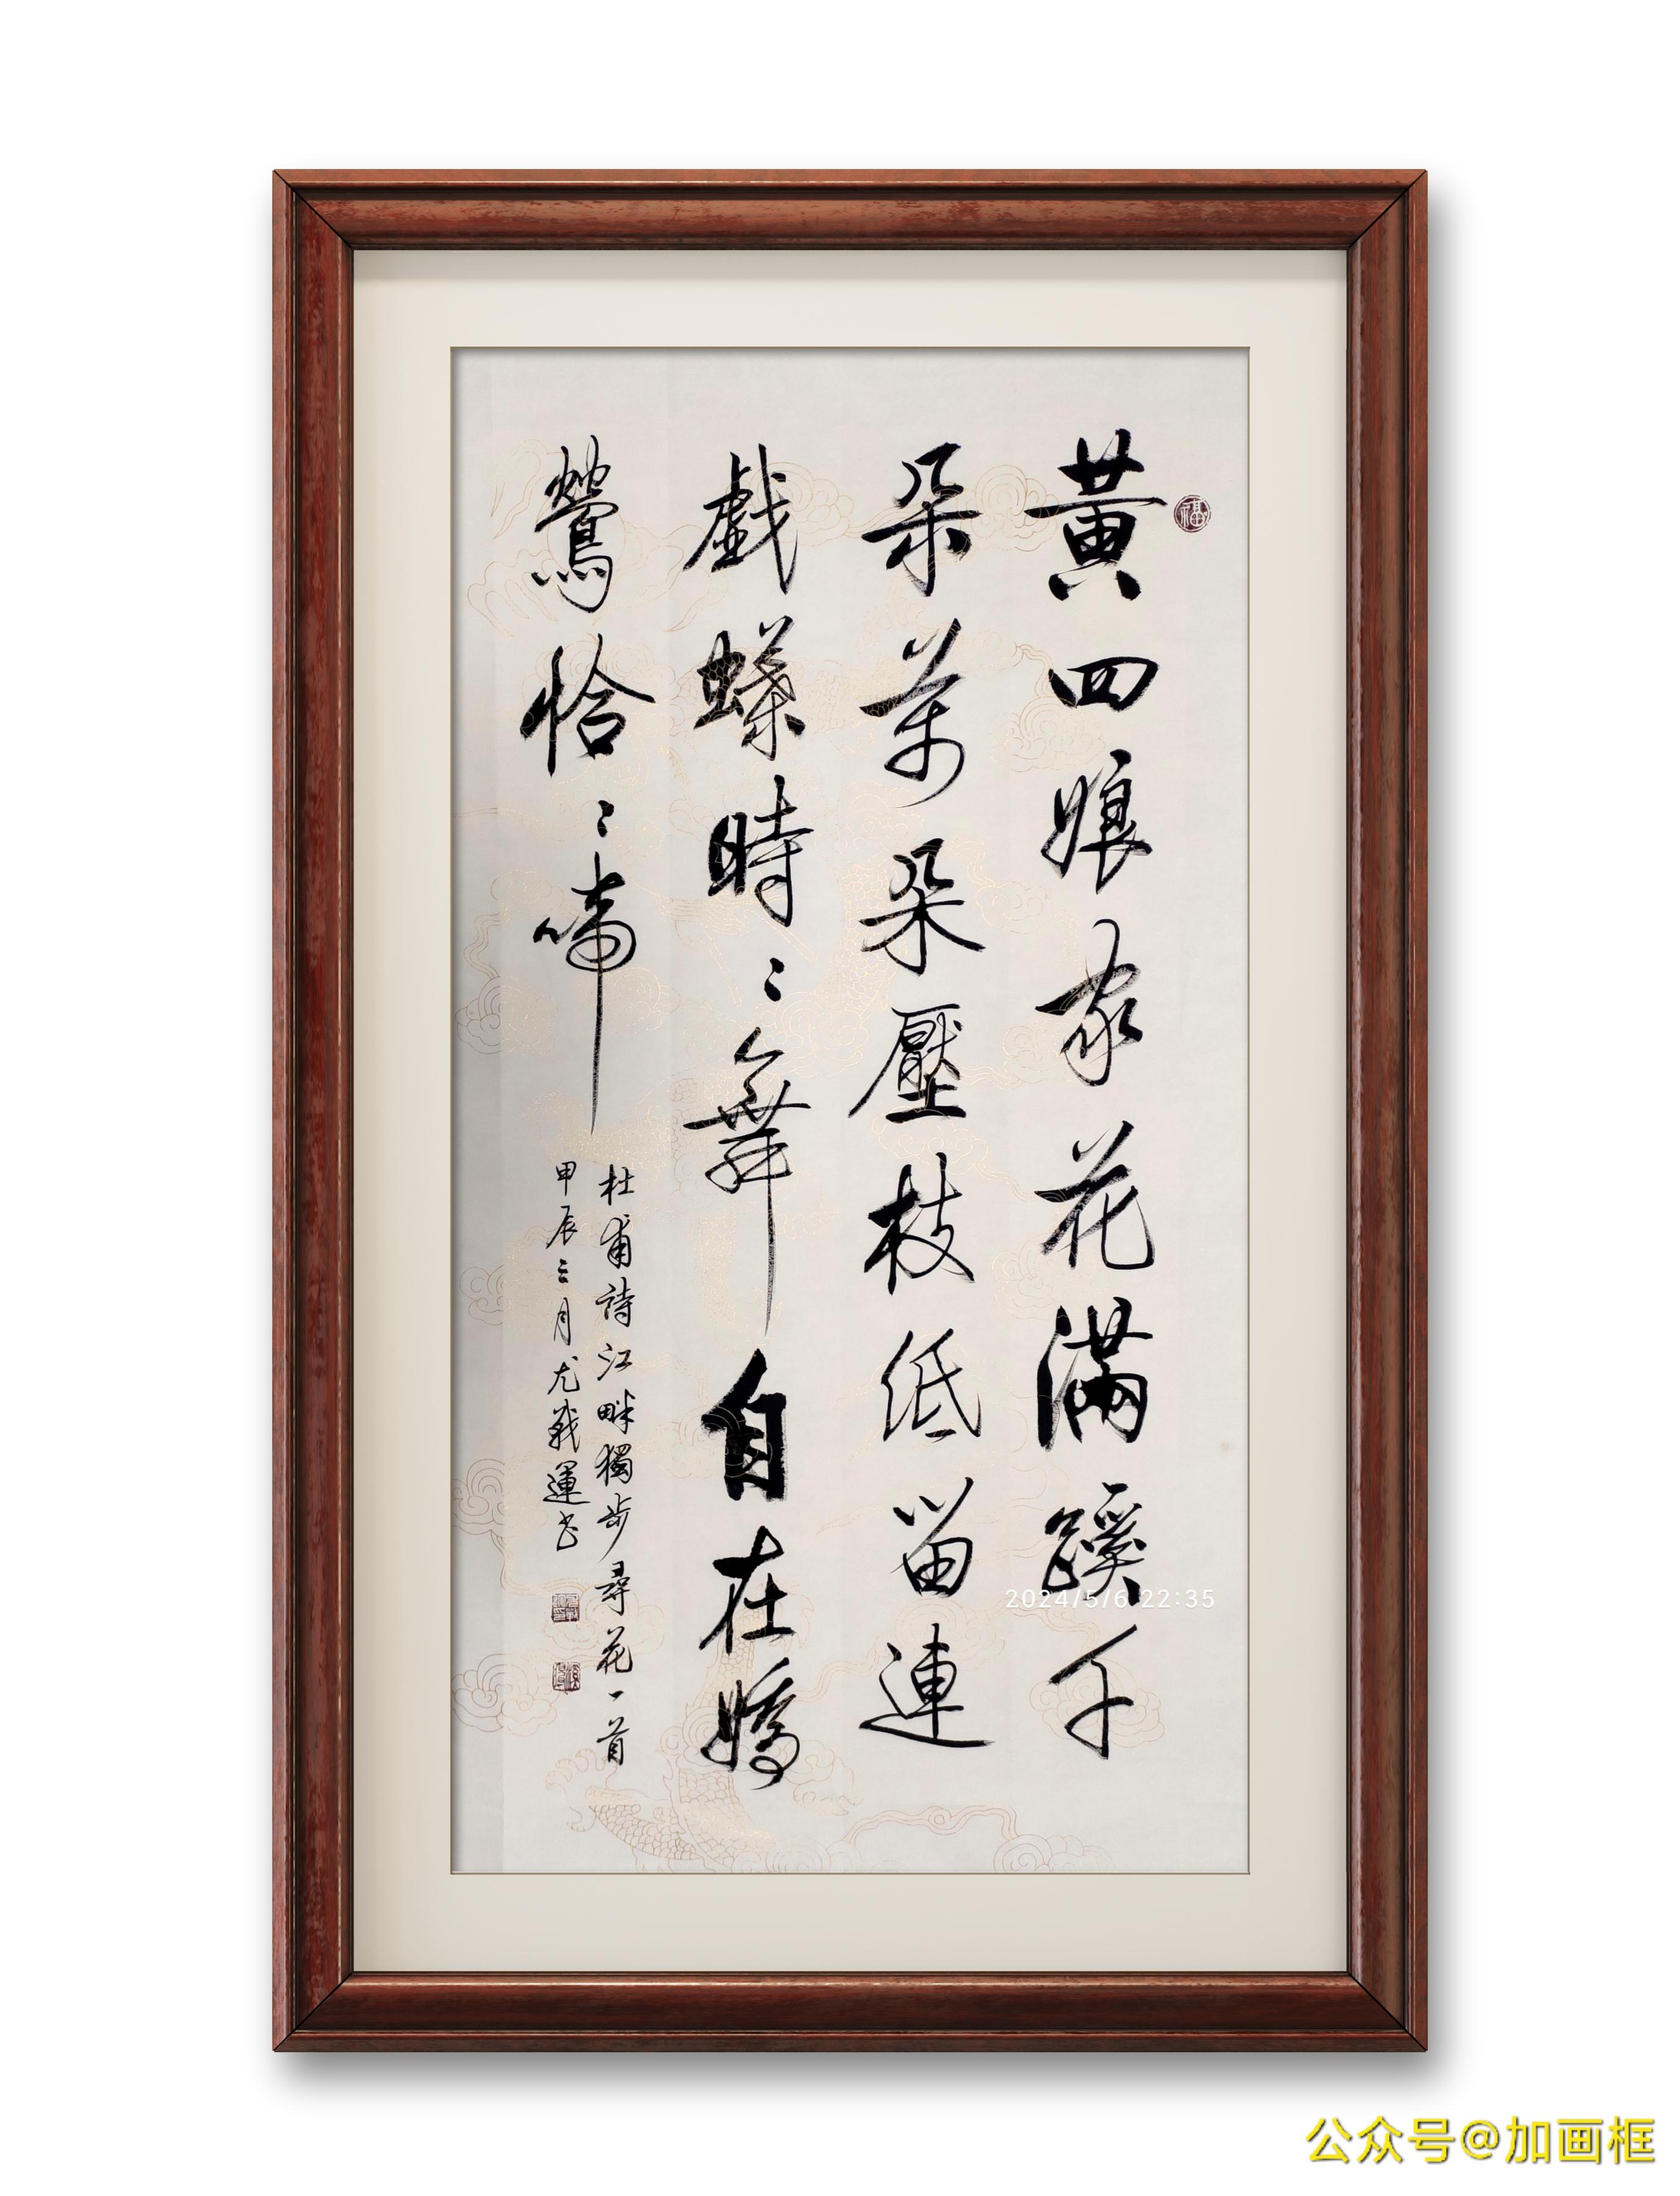 黄四娘家花滿蹊千
朵萬朵壓枝低留連
戲蝶時〻舞自在嬌
鶯恰〻啼
杜甫詩江畔獨步尋花一首
甲辰三月尤戰運书
福
2024/5/6 22:35
公众号@加画框